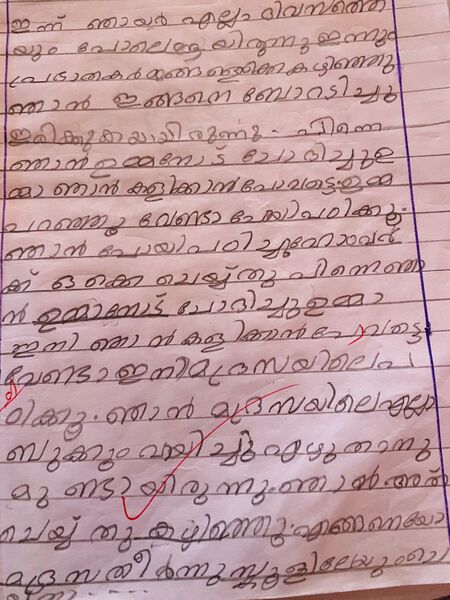 ഇന്ന് ഞായർ എല്ലാ ദിവസത്തെ
യും പോലെയായിരുന്നു ഇന്നും
പ്രഭാതകർമങ്ങളൊക്കെ കഴിഞ്ഞു
ഞാൻ ഇങ്ങനെ ബോറടിച്ചു
ഇരിക്കുകയായിരുന്നു. പിന്നെ
ഞാൻ ഉമ്മനോട് ചോദിച്ചു ഉ
മ്മാ ഞാൻ കളിക്കാൻ പോവട്ടെ ഉമ്മ
പറഞ്ഞു വേണ്ടാ പോയിപഠിക്കൂ.
ഞാൻ പോയിപഠിച്ചു
ക്ക് ഒക്കെ ചെയ്തു പിന്നെ ഞാ
ൻ ഉമ്മാനോട് ചോദിച്ചു ഉമ്മാ
ഇനി ഞാൻ കളിക്കാൻ പോവട്ടെ
വേണ്ടാ ഇനി മദ്രസയിലെ പ
ഠിക്കൂ. ഞാൻ മദ്രസയിലെ എല്ലാ
ബുക്കും വായിച്ചു എഴുതാനു
മുണ്ടായിരുന്നു. ഞാൻ അത്
ചെയ്തു കഴിഞ്ഞു. എങ്ങനെയോ
മദ്രസ തീർന്നു സ്കൂളിലേയും